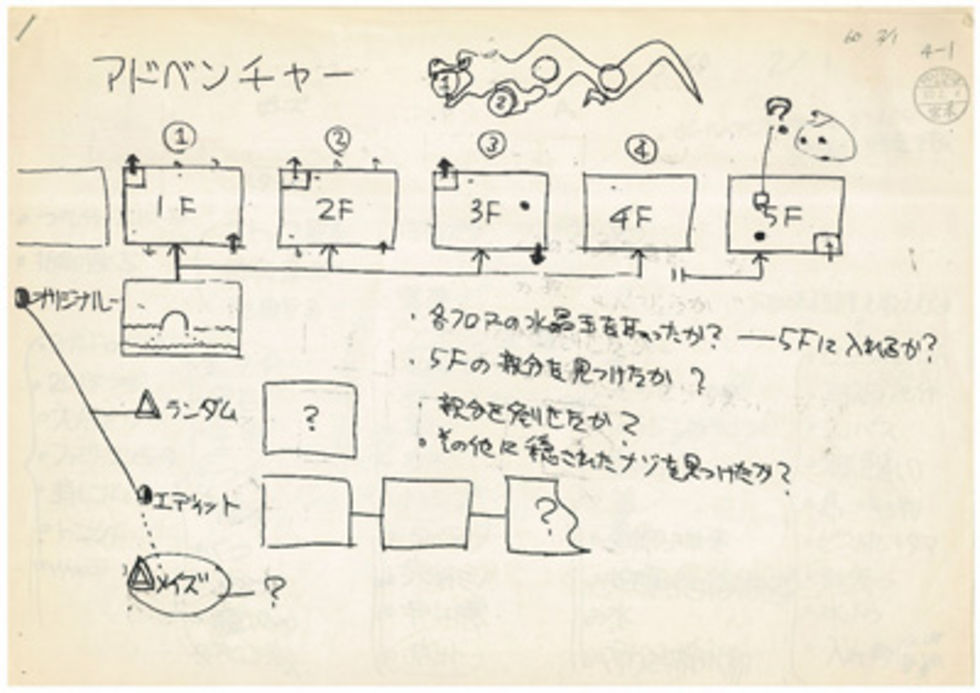 60 2/1
4-1
アドベンチャー
① ② ③ ④
1F 2F 3F 4F 5F
オリジナル
・各フロアの水晶玉をなったか? — 5Fに入れるか?
・5Fの親分を見つけたか?
ランダム
?
・親分を倒せたか?
・その他に穏されたナゾを見つけたか?
エディット
?
メイズ — ?